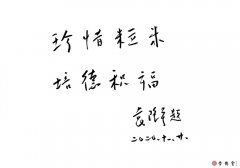 珍惜粒米
培德积福
袁隆平题
2020.十.廿.